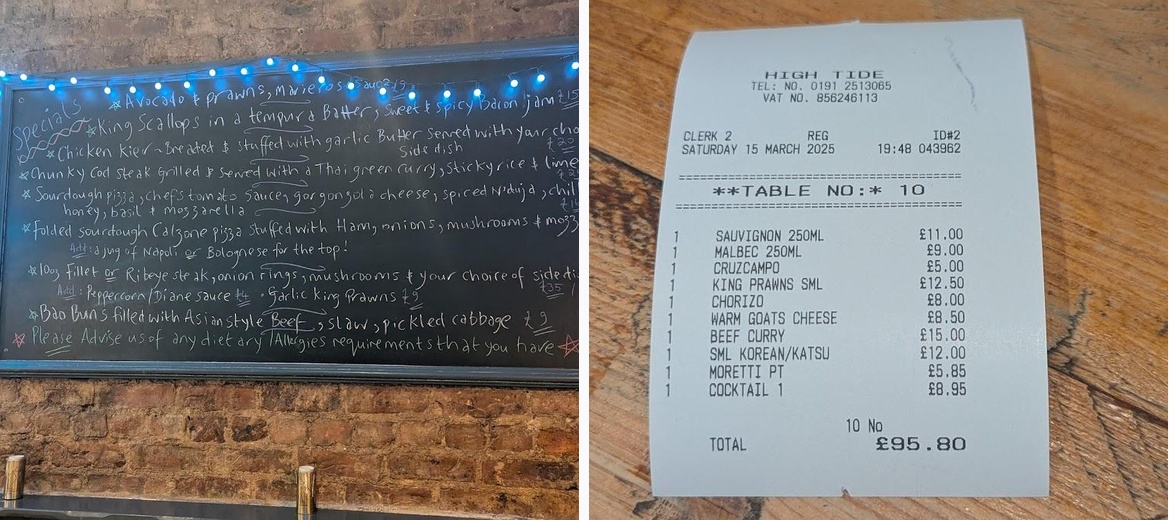 Specials
Avocado & prawns, marie ros Sauce £9
King Scallops in a tempura Batter, Sweet & Spicy Bacon jam £15
Chicken Kiev - Breaded & stuffed with garlic Butter Served with your cho
Side dish £20
Chunky Cod steak Grilled & Served with a Thai green curry, Sticky rice & lime
Sourdough pizza, chefs tomato Sauce, gorgonzola cheese, spiced N'duja, chil
honey, basil & mozzarella
folded sourdough Calzone pizza stuffed with Ham, onions, mushrooms & mozz
Add: a jug of Napoli or Bolognese for the top!
10oz Fillet or Ribeye steak, onion rings, mushrooms & your choice of side di
Add: Peppercorn/Diane sauce £4 . Garlic King Prawns £9 £35
Bao Buns filled with Asian style Beef, slaw, pickled cabbage £9
Please Advise us of any dietary /Allergies requirements that you have
HIGH TIDE
TEL: NO. 0191 2513065
VAT NO. 856246113
CLERK 2 REG ID#2
SATURDAY 15 MARCH 2025 19:48 043962
**TABLE NO:* 10
1 SAUVIGNON 250ML £11.00
1 MALBEC 250ML £9.00
1 CRUZCAMPO £5.00
1 KING PRAWNS SML £12.50
1 CHORIZO £8.00
1 WARM GOATS CHEESE £8.50
1 BEEF CURRY £15.00
1 SML KOREAN/KATSU £12.00
1 MORETTI PT £5.85
1 COCKTAIL 1 £8.95
10 No
TOTAL £95.80